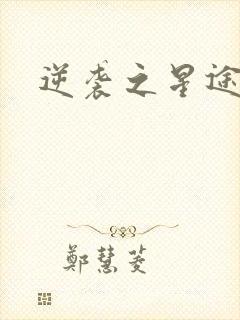 逆袭之星途
鄭慧菱